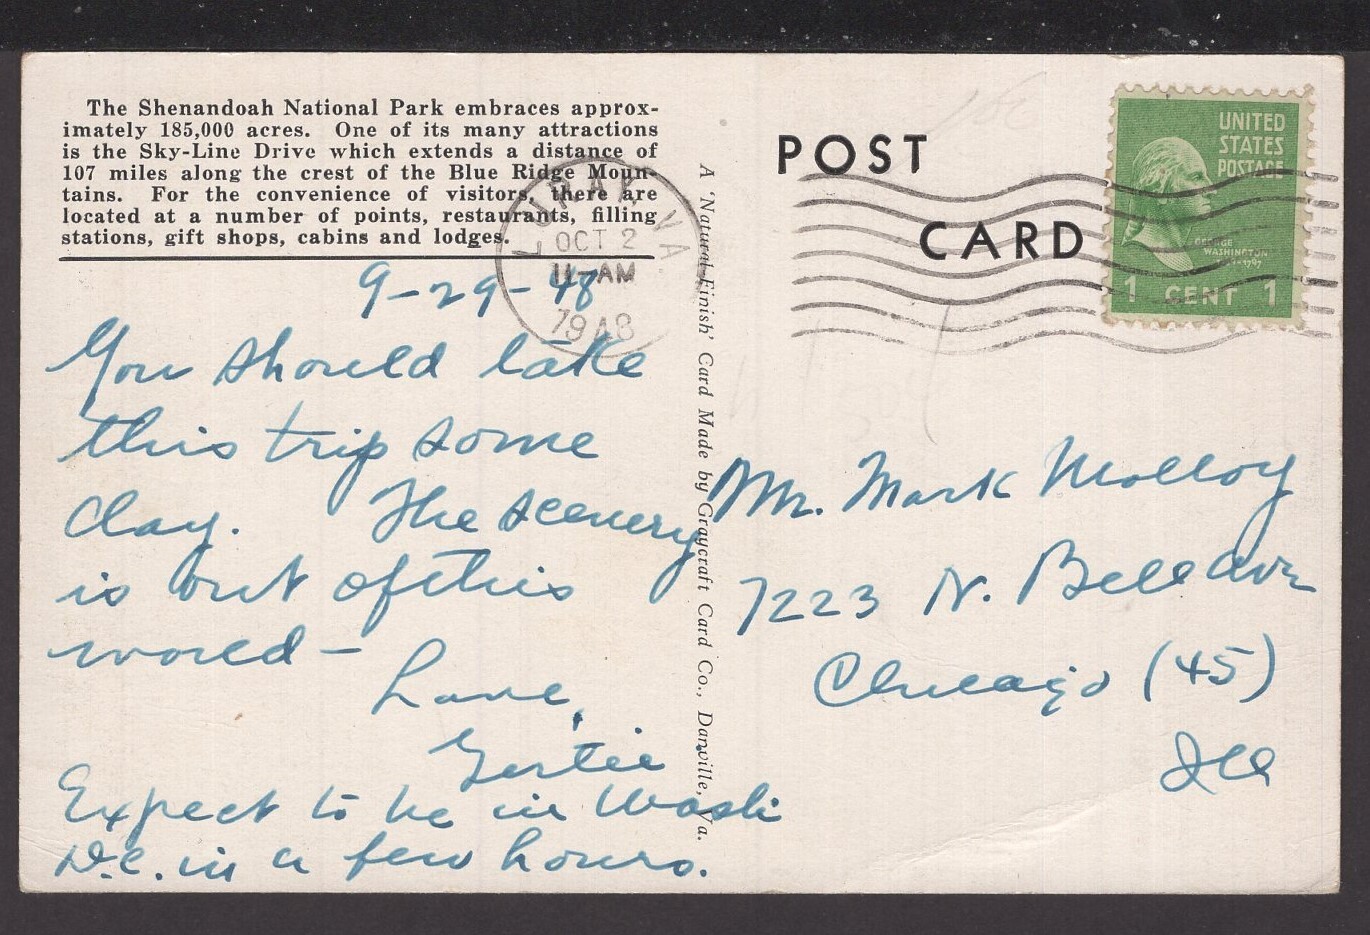 The Shenandoah National Park embraces approx-
imately 185,000 acres. One of its many attractions
is the Sky-Line Drive which extends a distance of
107 miles along the crest of the Blue Ridge Moun-
tains. For the convenience of visitors, there are
located at a number of points, restaurants, filling
stations, gift shops, cabins and lodges.
LURAY, VA.
OCT 2
11-AM
1948
9-29-48
You should take
this trip some
day. The scenery
is out of this
world -
Love,
Gertie
Expect to be in Wash
D.C. in a few hours.
A 'Natural-Finish' Card Made by Graycraft Card Co., Danville, Va.
POST
CARD
UNITED
STATES
POSTAGE
GEORGE
WASHINGTON
1 CENT 1
Mr. Mark Molloy
7223 N. Bell Ave
Chicago (45)
Ill